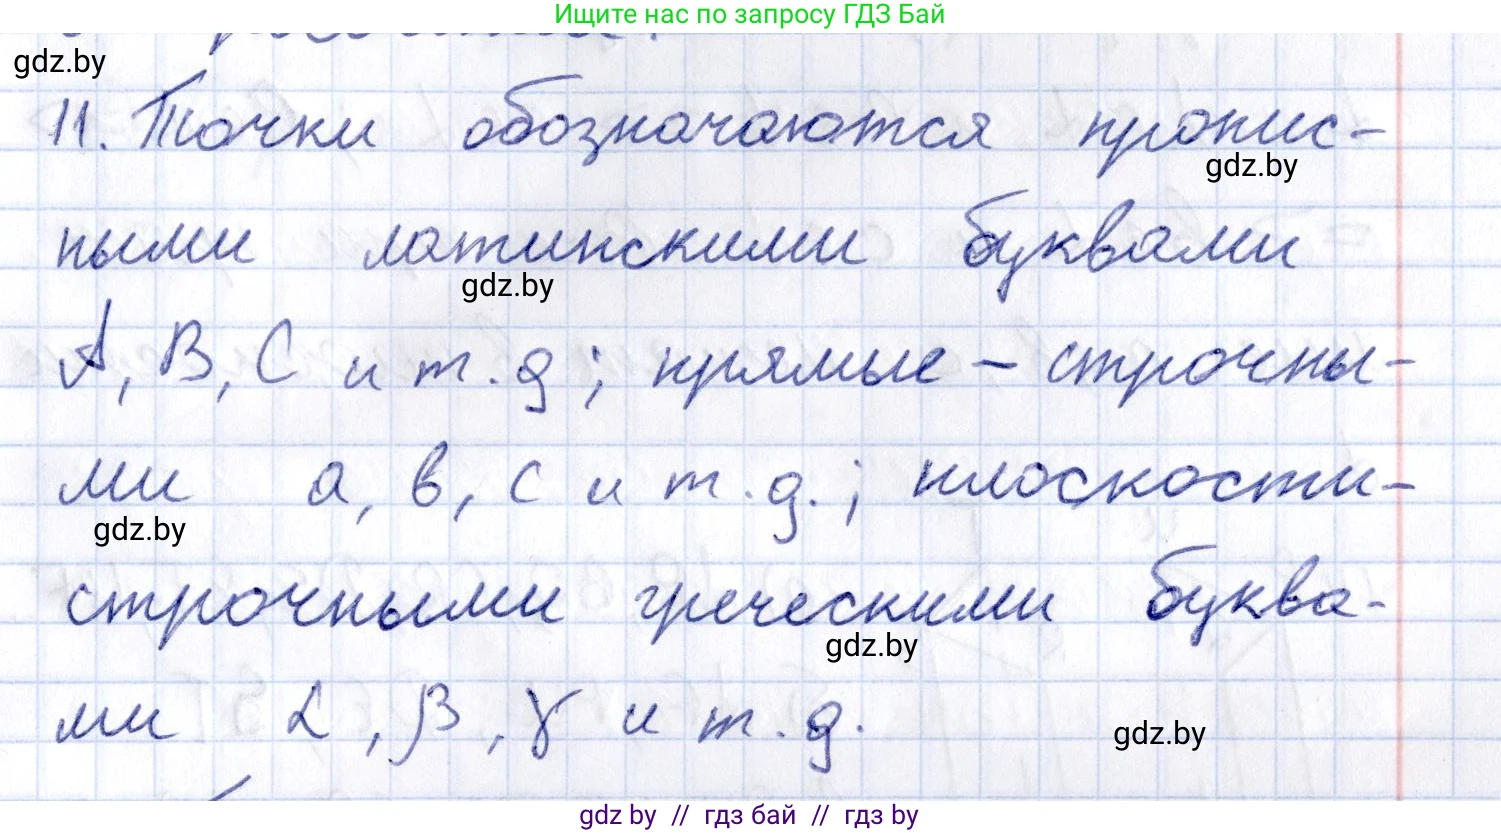 Ищите нас по запросу ГДЗ Бай
gdz.by
11. Точки обозначаются пропис-
gdz.by
ными латинскими буквами
gdz.by
A, B, C и т.д; прямые – строчны-
ми a, b, c и т.д.; плоскости-
gdz.by
строчными греческими буква-
gdz.by
ми α, β, γ и т.д.
gdz.by
gdz by // гдз бай // гдз by